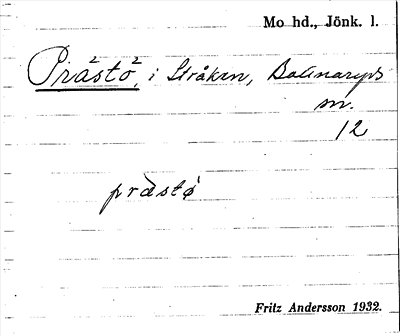 Mo hd., Jönk. l.
Prästö, i Stråken, Bolmaryds
m.
12
prästö̀
Fritz Andersson 1932.